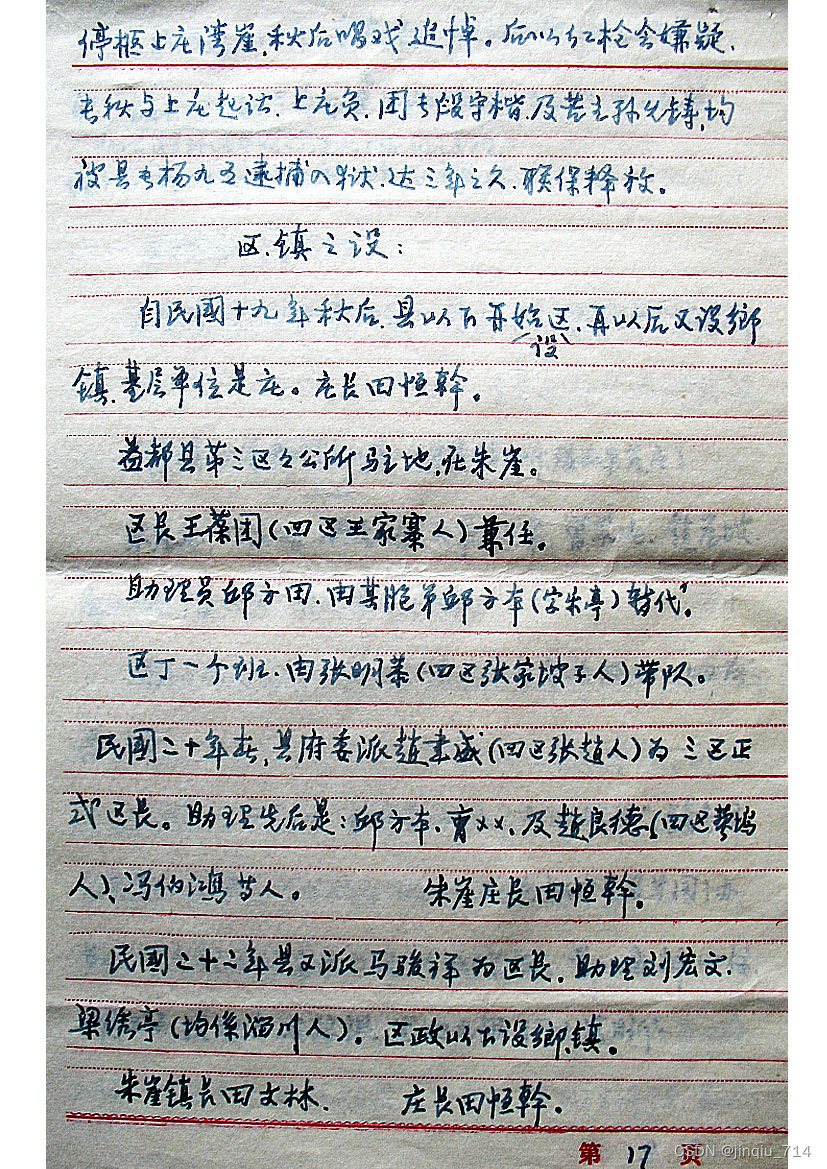 停柩上庄湾崖,秋后唱戏追悼。后以红枪会嫌疑,
去秋与上庄起讼,上庄负,团长段宇楷,及苦主孙允铸,均
被县长杨九五逮捕入狱,达三年之久,联保释放。
区、镇之设:
自民國十九年秋后,县以下开始设区,再以后又设鄉
镇,基层单位是庄。庄长田恒幹。
益都县第三区区公所驻地,在朱崖。
区长王葆团(四区王家寨人)兼任。
助理员邱方田,由其胞弟邱方本(字朱亭)暂代。
区丁一个班,由张明(四区张家坡子人)带队。
民國二十年春,县府委派趙盛(四区张趙人)为三区正
式区长。助理先后是:邱方本,育××,及趙良德(四区人)
人)、冯伯鴻等人。 朱崖庄长田恒幹。
民國二十二年县又派马骏祥为区长。助理刘宏文,
梁绣亭(均係淄川人)。区政以下设鄉、镇。
朱崖镇长田文林, 庄长田恒幹。
第 17 页
CSDN @jinqiu_714